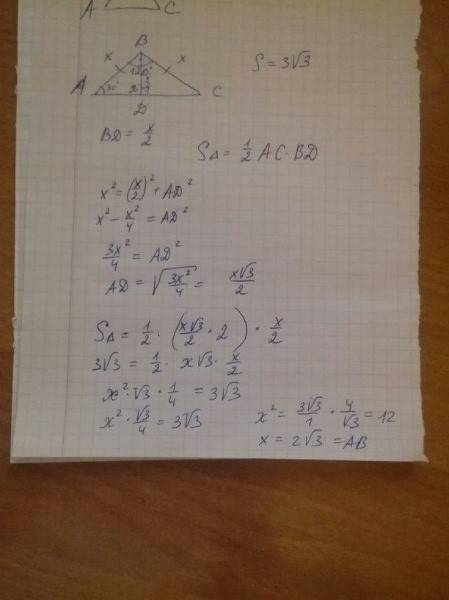 A C
B
x x
120°
A 30° C
D
S = 3√3
BD = x/2
S△ = 1/2 AC · BD
x² = (x/2)² + AD²
x² - x²/4 = AD²
3x²/4 = AD²
AD = √(3x²/4) = x√3/2
S△ = 1/2 · (x√3/2 · 2) · x/2
3√3 = 1/2 · x√3 · x/2
x² · √3 · 1/4 = 3√3
x² · √3/4 = 3√3
x² = 3√3/1 · 4/√3 = 12
x = 2√3 = AB